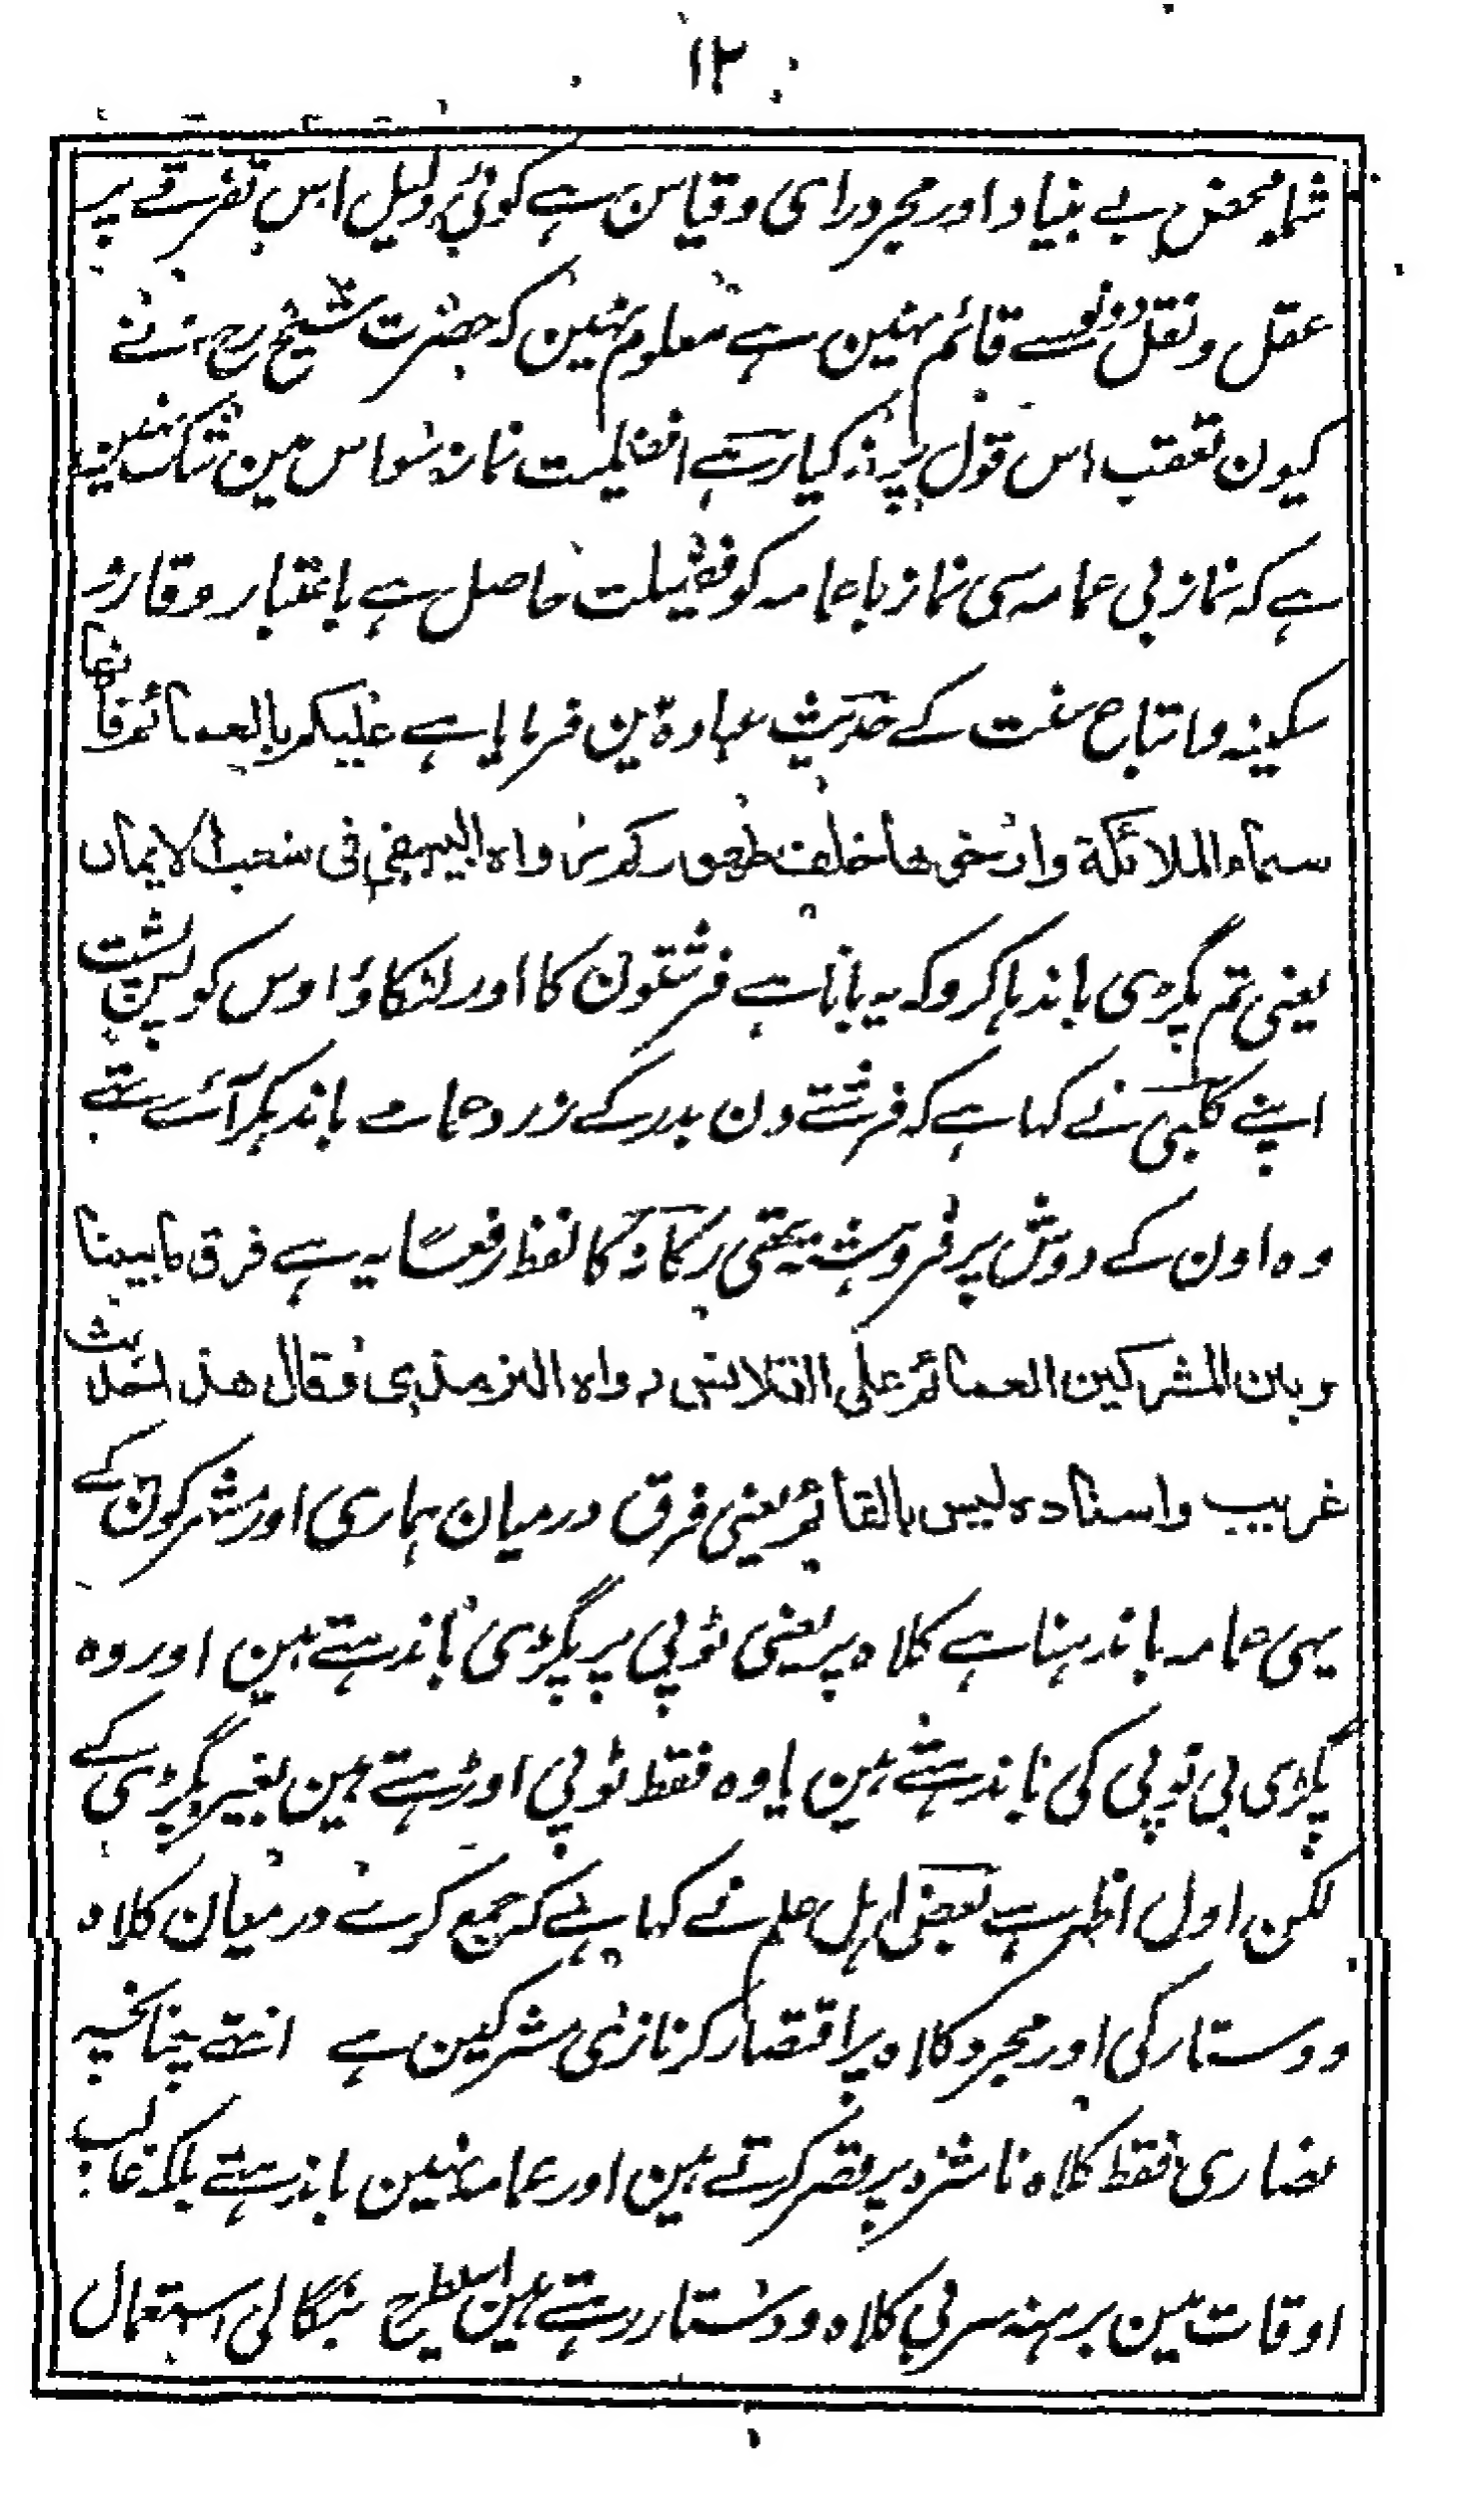 ۱۲
شملہ محض بے بنیاد اور مجرد رای و قیاس ہے کوئی دلیل اس تفرقے پر
عقل و نقل دونوسے قائم نہین ہے معلوم نہین کہ حضرت شیخ رح نے
کیون تعقب اس قول پر نہ کیا رہے افضلیت نماز سو اس مین شک نہین
ہے کہ نماز بی عمامہ سی نماز با عمامہ کو فضیلت حاصل ہے باعتبار وقار و
سکینہ و اتباع سنت کے حدیث عبادۃ ین فرمایا ہے علیکم بالعمائم فانها
سیماء الملائکة وارخوها خلف ظهورکم رواه البیهقی فی شعب الایمان
یعنی تم پگڑی باندہا کرو کہ یہ بانا ہے فرشتون کا اور لٹکاؤ اوس کو پس پشت
اپنے کلبی نے کہا ہے کہ فرشتے دن بدر کے زرد عمامے باندہکر آئے تہے
وہ اون کے دوش پر فروہشتہ تھی رکانہ کا لفظ رفعًا یہ ہے فرق ما بیننا
وبین المشرکین العمائم علی القلانس رواه الترمذی وقال هذا حدیث
غریب واسناده لیس بالقائم یعنی فرق درمیان ہماری اور مشرکون کے
یہی عمامہ باندہنا ہے کلاہ پر یعنی ٹوپی پر پگڑی باندہتے ہین اور وہ
پگڑی بی ٹوپی کی باندہتے ہین یا وہ فقط ٹوپی اوڑہتے ہین بغیر پگڑی کے
لکن اول اظہر ہے بعض اہل علم نے کہا ہے کہ جمع کرے درمیان کلاہ
و دستار کی اور مجرد کلاہ پر اقتصار کرنا زی مشرکین ہے انتہے چنانچہ
نصاری فقط کلاہ ناشزہ پر قصر کرتے ہین اور عمامہ نہین باندہتے بلکہ غالب
اوقات مین برہنہ سر بی کلاہ و دستار رہتے ہین اسیطرح بنگالی استعمال